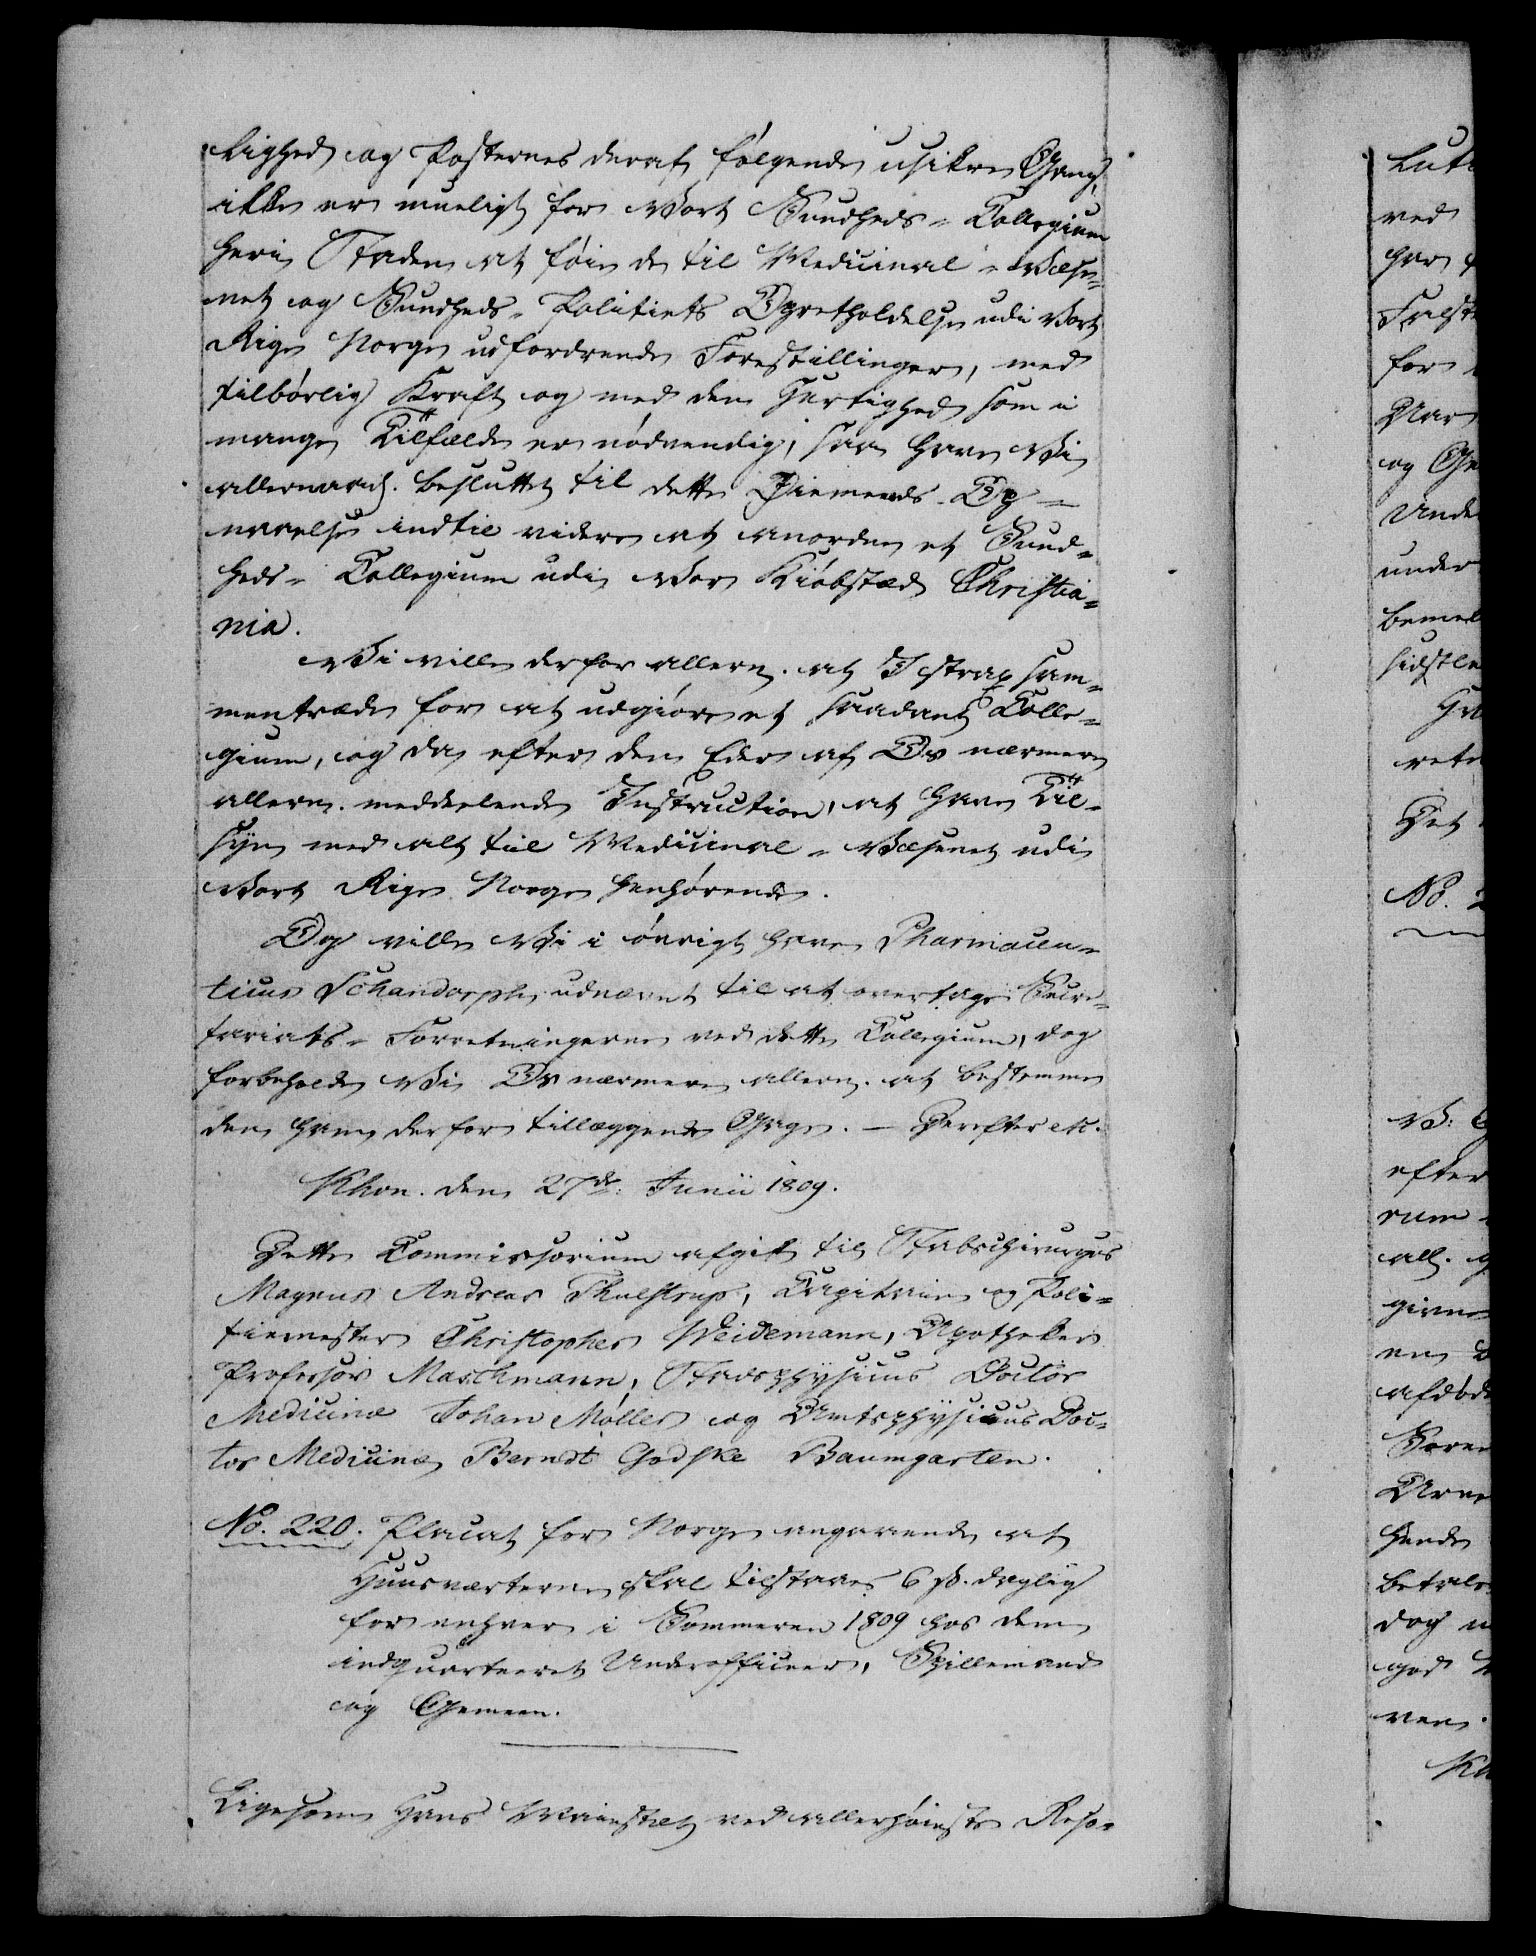 lighed og Posternes deraf følgende usikre Gang,
ikke er mueligt for Vort Sundheds-Collegium
her i Staden at føie de til Medicinal-Væse-
net og Sundheds-Politiets Opretholdelse udi Vort
Rige Norge udfordrende Forestillinger, med
tilbørlig Kraft og med den Hurtighed som i
mange Tilfælde er nødvendig; saa have Vi
allernaad. besluttet til dette Øiemeds Op-
naaelse indtil videre at anordne et Sund-
heds-Collegium udi Vor Kiøbstæd Christia-
nia.
Vi ville derfor allern. at I strax sam-
mentræde for at udgiøre et saadant Colle-
gium, og da efter den Eder af Os nærmere
allern. meddeelende Instruction, at have Til-
syn med alt til Medicinal-Væsenet udi
Vort Rige Norge henhørende.
Og ville Vi i øvrigt have Pharmaceu-
ticus Schandorph udnævnt til at overtage Secre-
tariats-Forretningerne ved dette Collegium, dog
forbeholde Vi Os nærmere allern. at bestemme
den ham derfor tillæggende Gage. — Derefter etc.
Khvn. den 27de: Junii 1809.
Dette Commissorium afgik til Stabschirurgus
Magnus Andreas Thulstrup, Capitain og Poli-
tiemester Christopher Weidemann, Apotheker
Professor Maschmann, Stadsphysicus Doctor
Medicinæ Johan Møller og Amtsphysicus Doc-
tor Medicinæ Berndt Godske Baumgarten.
No. 220. Placat for Norge angaaende at
Huusværterne skal tilstaaes 6 ß. daglig
for enhver i Sommeren 1809 hos dem
indqvarteeret Underofficeer, Spillemand
og Gemeen.
Ligesom Hans Majestæt ved allerhøieste Reso-